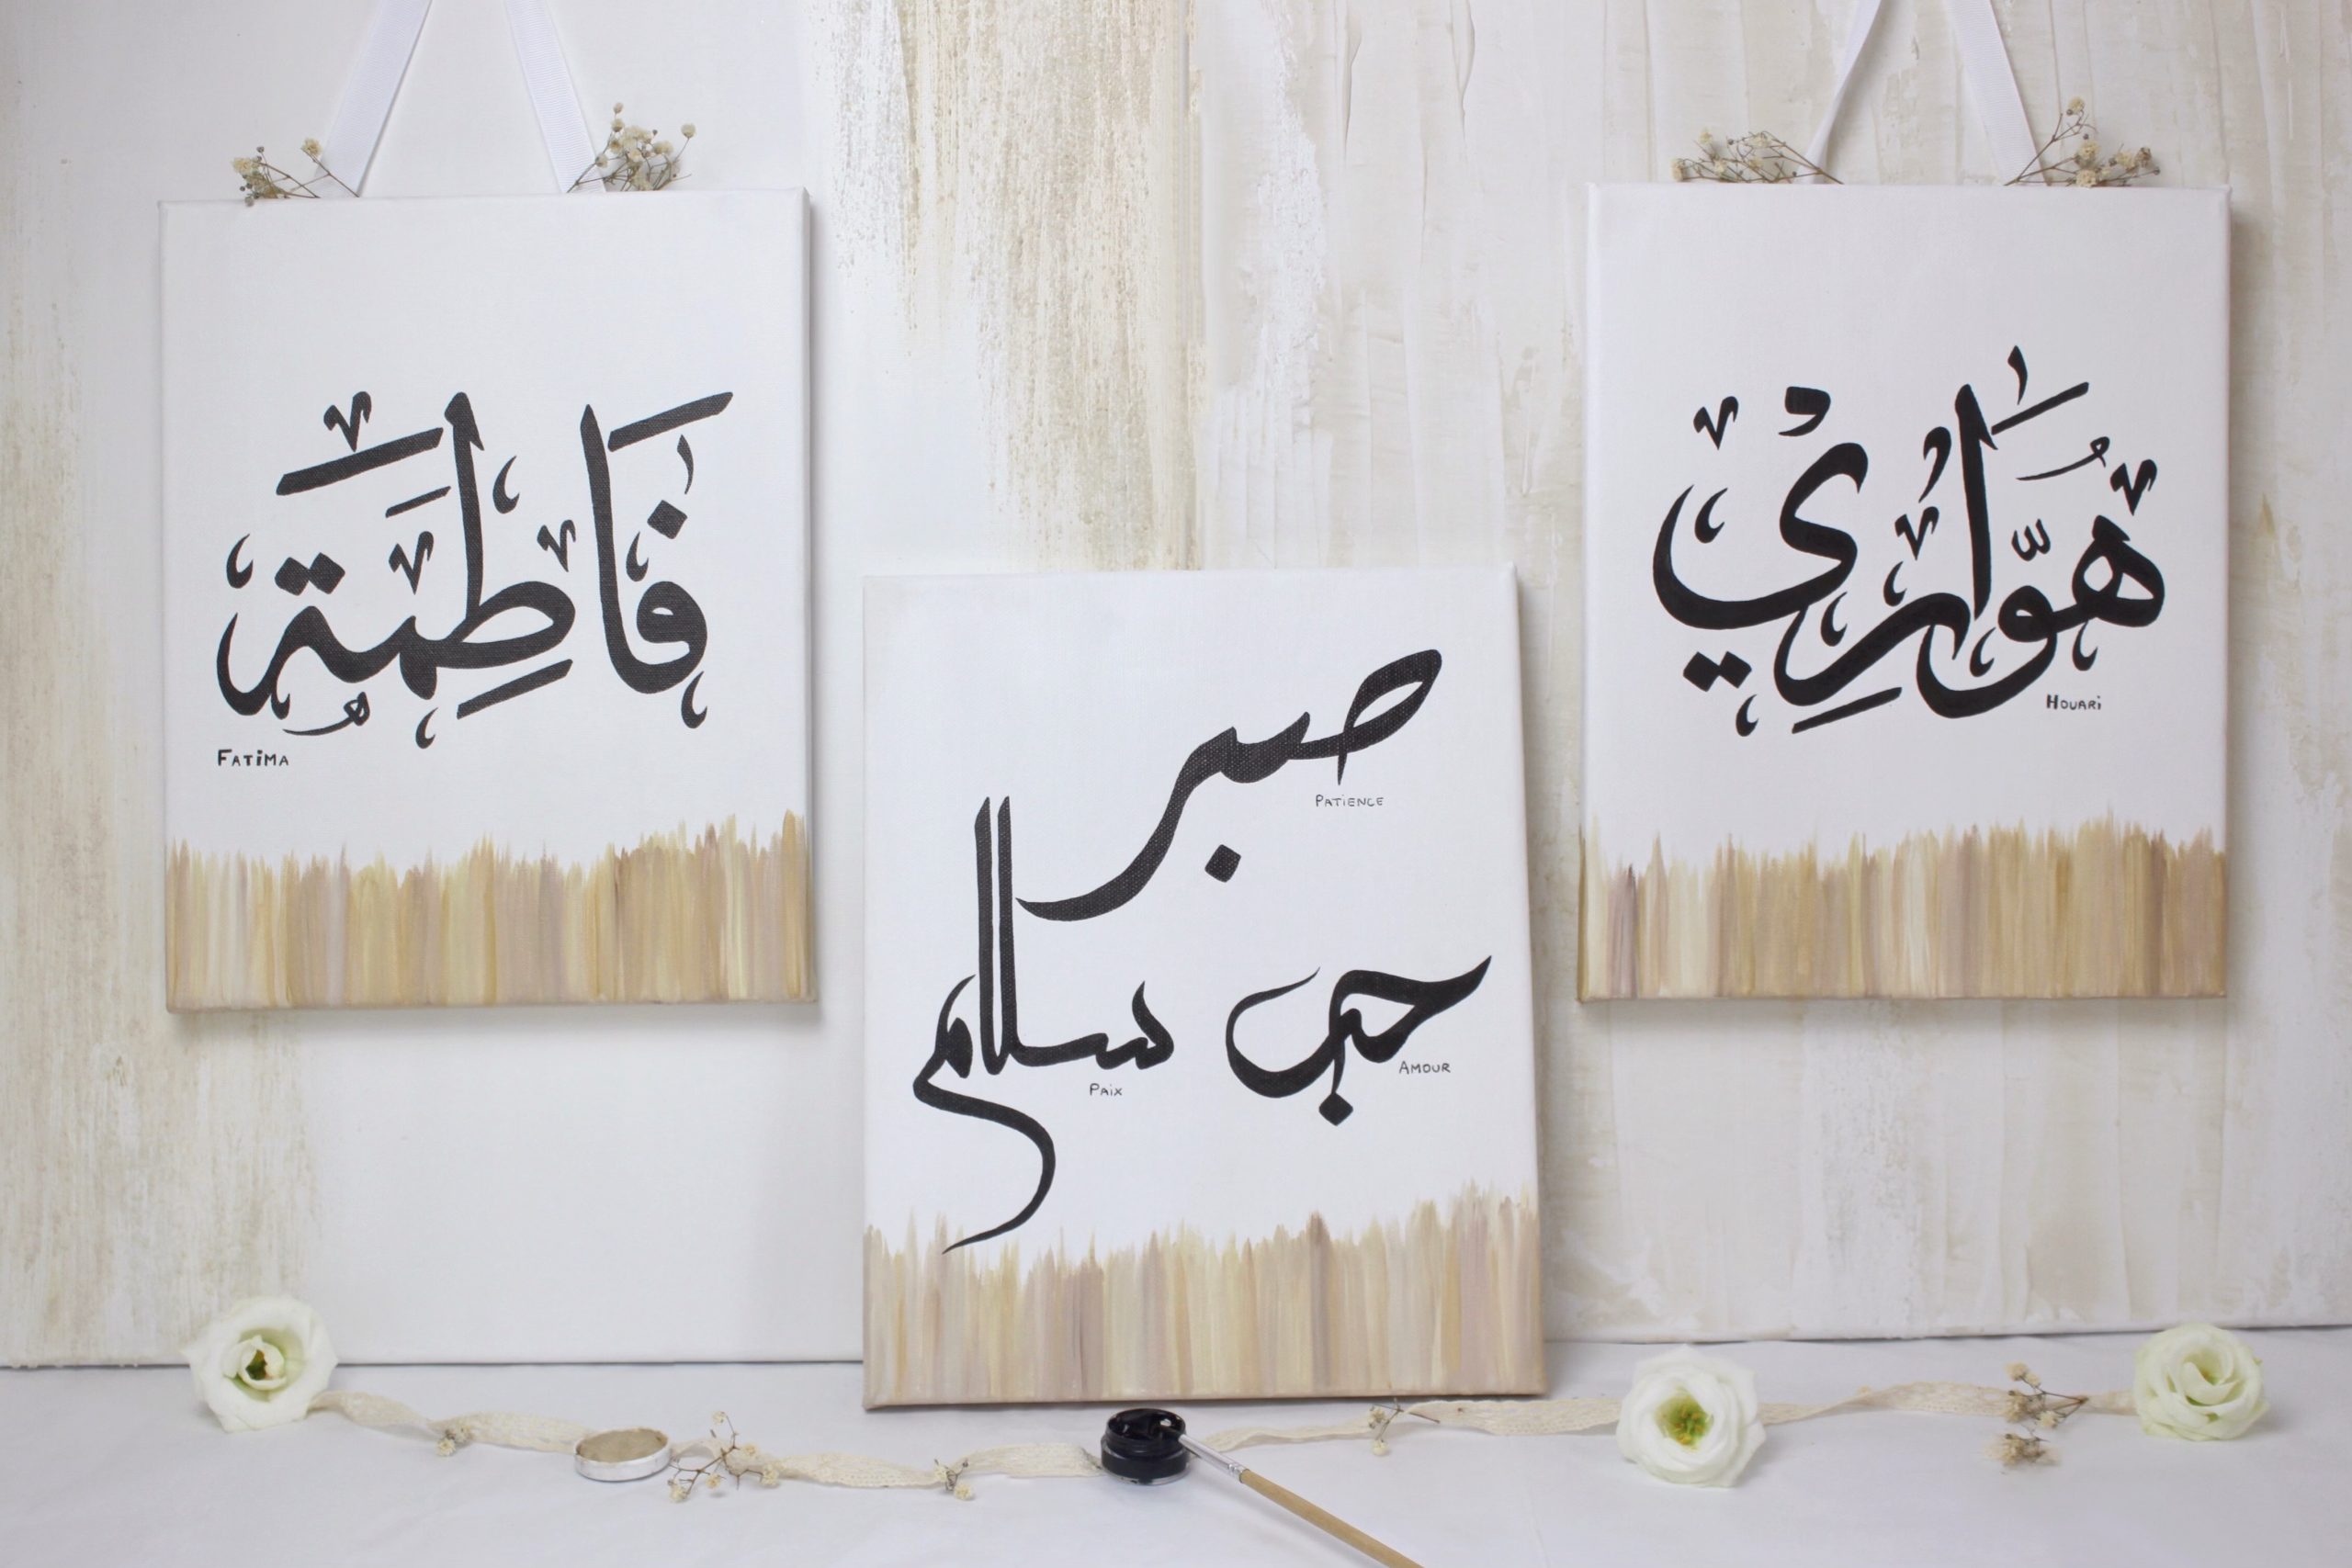 فَاطِمَة
FATIMA
صبر
PATIENCE
حب
AMOUR
سلام
PAIX
هَوَّارِي
HOUARI